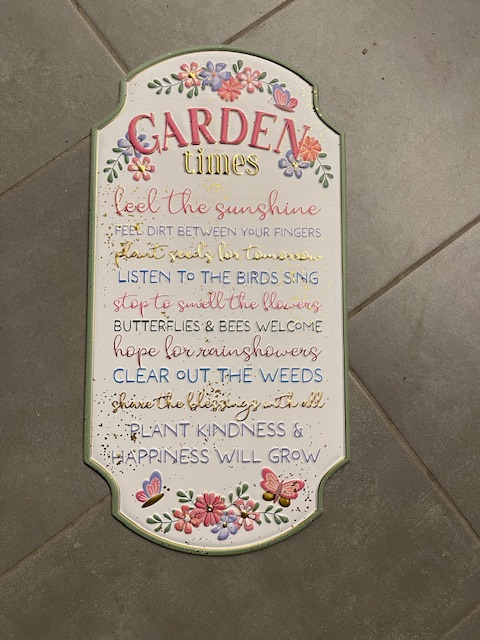 GARDEN
times
feel the sunshine
FEEL DIRT BETWEEN YOUR FINGERS
plant seeds for tomorrow
LISTEN TO THE BIRDS SING
stop to smell the flowers
BUTTERFLIES & BEES WELCOME
hope for rainshowers
CLEAR OUT THE WEEDS
share the blessings with all
PLANT KINDNESS &
HAPPINESS WILL GROW